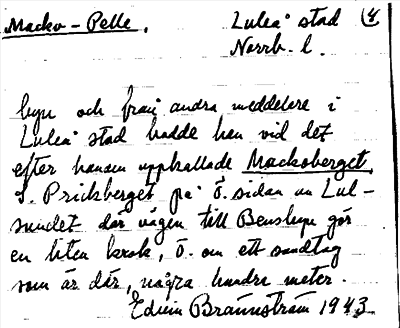 Macko-Pelle. Luleå stad (4
Norrb. l.
byn och från andra meddelare i
Luleå stad hade han vid det
efter honom uppkallade Mackoberget,
S. Pricksberget på ö. sidan av Lul-
sundet där vägen till Bensbyn gör
en liten krok, ö. om ett sandtag
som är där, några hundra meter.
Edvin Brännström 1943